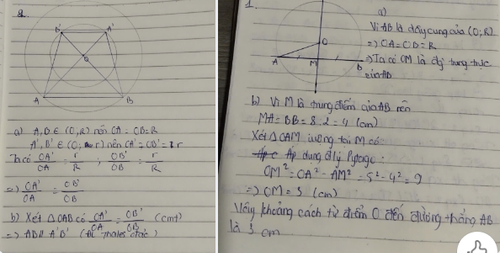 2.
A' B'
O
A B
a) A, B ∈ (O, R) nên OA = OB = R
A', B' ∈ (O; r) nên OA' = OB' = r
Ta có OA'/OA = r/R, OB'/OB = r/R
=> OA'/OA = OB'/OB
b) Xét △OAB có OA'/OA = OB'/OB (cmt)
=> AB // A'B' (ĐL Thales đảo)
1.
O
A M B
a)
Vì AB là dây cung của (O; R)
=> OA = OB = R
=> Ta có OM là đg trung trực
của AB
b) Vì M là trung điểm của AB nên
MA = BB = 8:2 = 4 (cm)
Xét △OAM vuông tại M có:
Áp dụng đ lý Pytago:
OM² = OA² - AM² = 5² - 4² = 9
=> OM = 3 (cm)
Vậy khoảng cách từ điểm O đến đường thẳng AB
là 3 cm